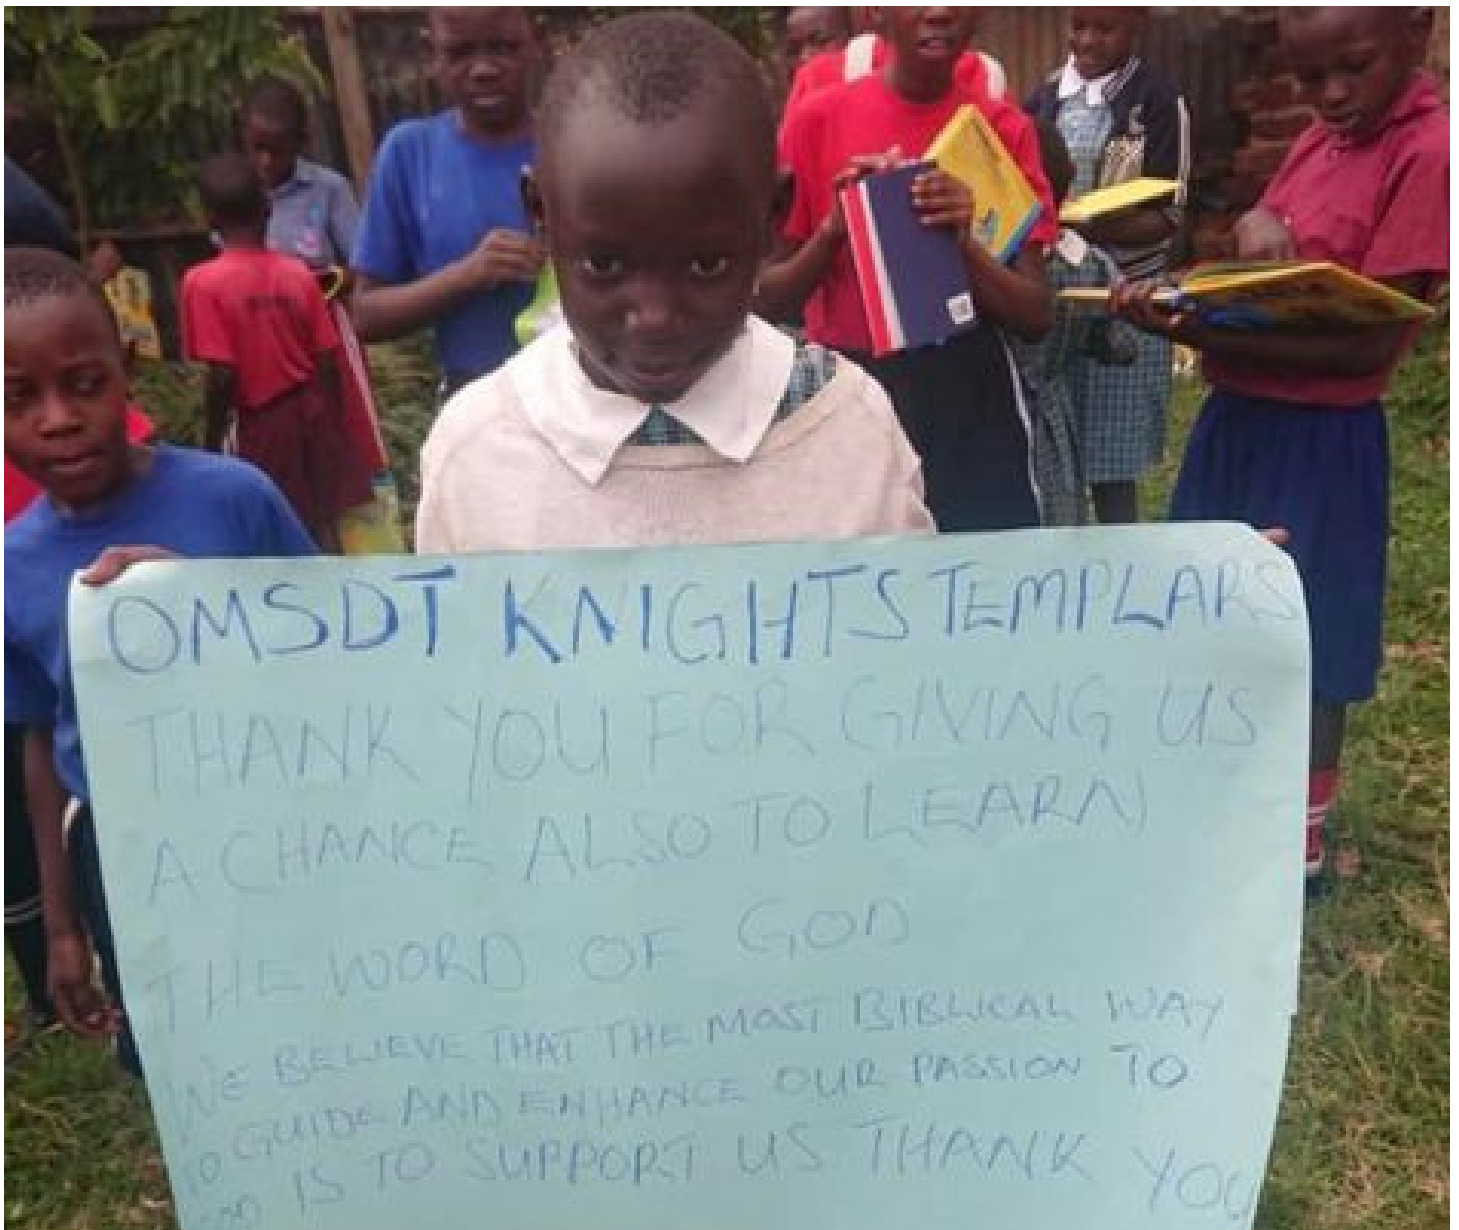 OMSDT KNIGHTS TEMPLARS
THANK YOU FOR GIVING US
A CHANCE ALSO TO LEARN
THE WORD OF GOD
WE BELIEVE THAT THE MOST BIBLICAL WAY
TO GUIDE AND ENHANCE OUR PASSION TO
IS TO SUPPORT US THANK YOU